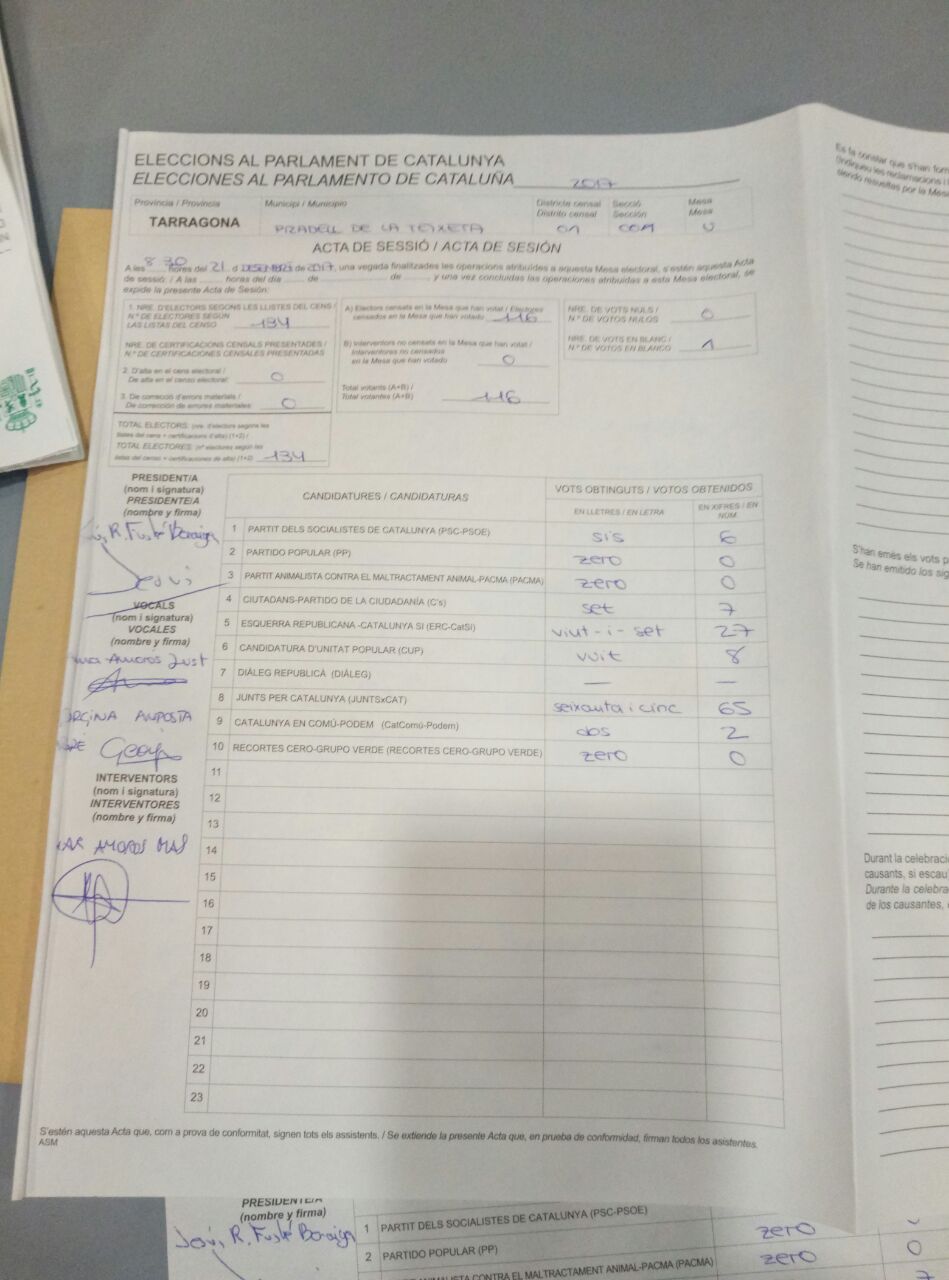 ELECCIONS AL PARLAMENT DE CATALUNYA
ELECCIONES AL PARLAMENTO DE CATALUÑA 2017
Província / Provincia
TARRAGONA
Municipi / Municipio
PRADELL DE LA TEIXETA
Districte censal
Distrito censal
01
Secció
Sección
001
Mesa
Mesa
U
ACTA DE SESSIÓ / ACTA DE SESIÓN
A les 8 30 hores del 21 d DESEMBRE de 2017, una vegada finalitzades les operacions atribuïdes a aquesta Mesa electoral, s'estén aquesta Acta
de sessió: / A las horas del día de de y una vez concluidas las operaciones atribuidas a esta Mesa electoral, se
expide la presente Acta de Sesión:
1. NRE. D'ELECTORS SEGONS LES LLISTES DEL CENS /
N.º DE ELECTORES SEGÚN
LAS LISTAS DEL CENSO 134
NRE. DE CERTIFICACIONS CENSALS PRESENTADES /
N.º DE CERTIFICACIONES CENSALES PRESENTADAS
2. D'alta en el cens electoral /
De alta en el censo electoral: 0
3. De correcció d'errors materials:
De corrección de errores materiales: 0
TOTAL ELECTORS: (nre. d'electors segons les
llistes del cens + certificacions d'alta) (1+2) /
TOTAL ELECTORES: (nº electores según las
listas del censo + certificaciones de alta) (1+2) 134
A) Electors censats en la Mesa que han votat / Electores
censados en la Mesa que han votado 116
B) Interventors no censats en la Mesa que han votat /
Interventores no censados
en la Mesa que han votado 0
Total votants (A+B) /
Total votantes (A+B) 116
NRE. DE VOTS NULS /
N.º DE VOTOS NULOS 0
NRE. DE VOTS EN BLANC /
N.º DE VOTOS EN BLANCO 1
PRESIDENT/A
(nom i signatura)
PRESIDENTE/A
(nombre y firma)
R. Fusté
VOCALS
(nom i signatura)
VOCALES
(nombre y firma)
Amorós Just
INTERVENTORS
(nom i signatura)
INTERVENTORES
(nombre y firma)
AMOROS MAS
CANDIDATURES / CANDIDATURAS
VOTS OBTINGUTS / VOTOS OBTENIDOS
EN LLETRES / EN LETRA
EN XIFRES / EN NÚM.
1 PARTIT DELS SOCIALISTES DE CATALUNYA (PSC-PSOE) sis 6
2 PARTIDO POPULAR (PP) zero 0
3 PARTIT ANIMALISTA CONTRA EL MALTRACTAMENT ANIMAL-PACMA (PACMA) zero 0
4 CIUTADANS-PARTIDO DE LA CIUDADANÍA (C's) set 7
5 ESQUERRA REPUBLICANA -CATALUNYA SÍ (ERC-CatSí) vint-i-set 27
6 CANDIDATURA D'UNITAT POPULAR (CUP) vuit 8
7 DIÀLEG REPUBLICÀ (DIÀLEG) — —
8 JUNTS PER CATALUNYA (JUNTSxCAT) seixanta i cinc 65
9 CATALUNYA EN COMÚ-PODEM (CatComú-Podem) dos 2
10 RECORTES CERO-GRUPO VERDE (RECORTES CERO-GRUPO VERDE) zero 0
11
12
13
14
15
16
17
18
19
20
21
22
23
S'estén aquesta Acta que, com a prova de conformitat, signen tots els assistents. / Se extiende la presente Acta que, en prueba de conformidad, firman todos los asistentes.
ASM
Es fa constar que s'han
(Indiqueu les reclamacions
siendo resueltas por la Mesa
S'han emès els vots
Se han emitido los
Durant la celebració
causants, si escau
Durante la
de los causantes,
PRESIDENTE/A
(nombre y firma)
R. Fusté
1 PARTIT DELS SOCIALISTES DE CATALUNYA (PSC-PSOE)
2 PARTIDO POPULAR (PP) zero 0
ANIMALISTA CONTRA EL MALTRACTAMENT ANIMAL-PACMA (PACMA) zero